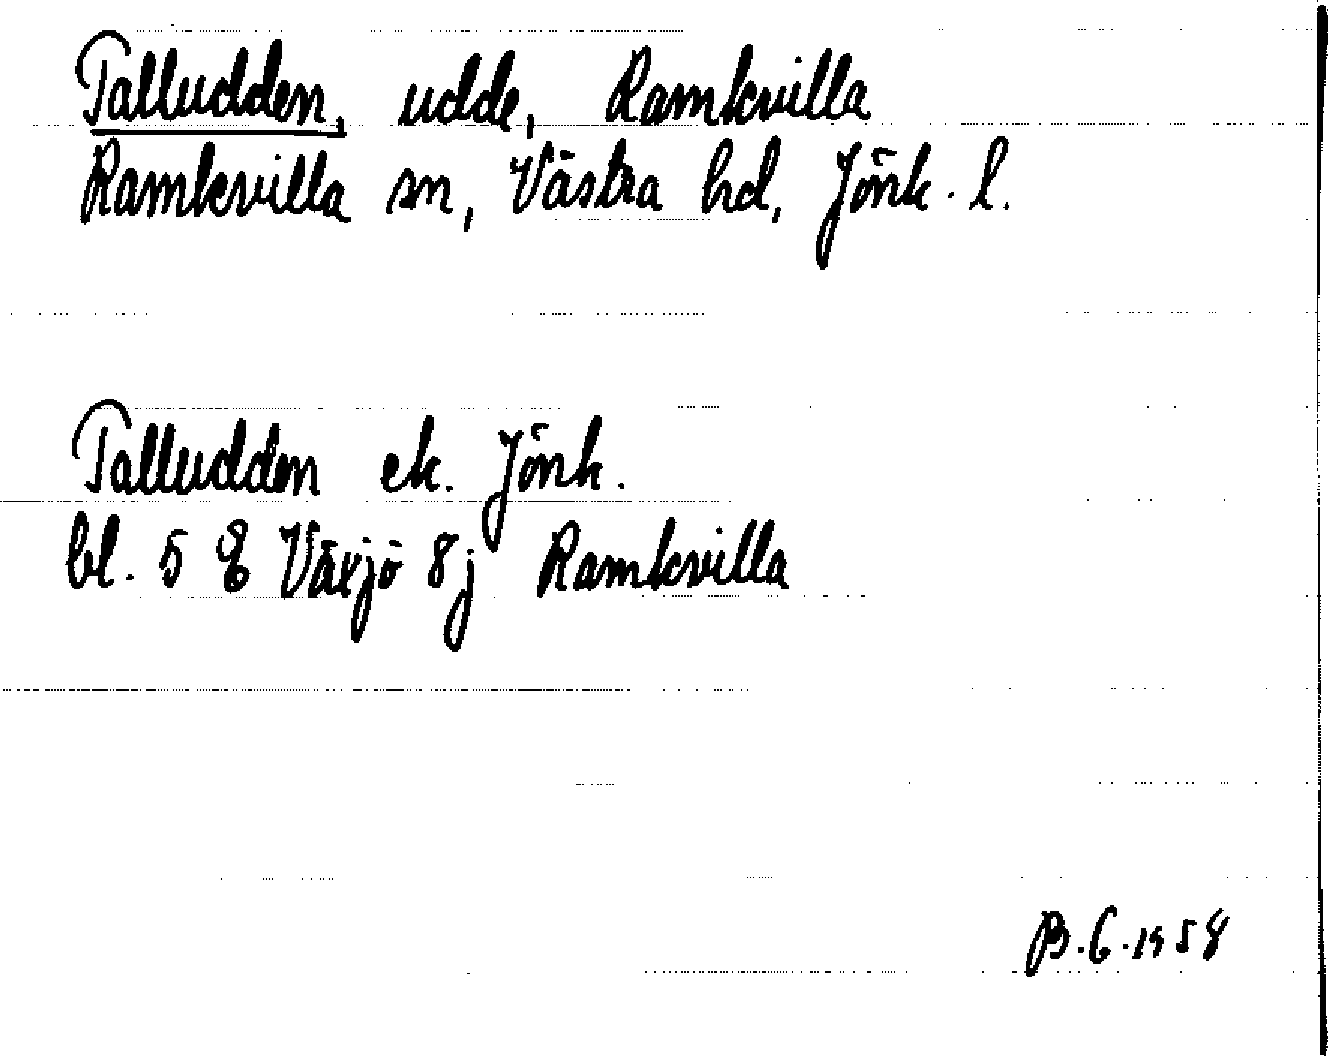 Talludden, udde, Ramkvilla
Ramkvilla sn, Västra hd, Jönk. l.
Talludden ek. Jönk.
bl. 5 E Växjö 8j Ramkvilla
B.G. 1958